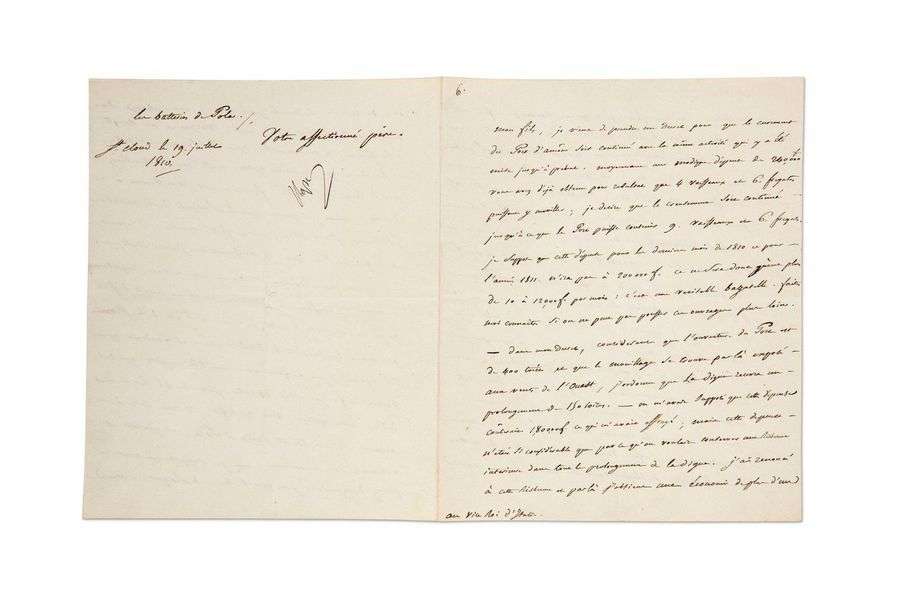 les batteries de Pola ./.
Votre affectionné père.
St cloud le 19. juillet
1810.
Nap
6.
mon fils, je viens de prendre un decret pour que le curement
du Port d'ancône soit continué avec la même activité qui y a été
mise jusqu'à présent. moyennant une modique dépense de 240000 f
vous avez déjà obtenu pour résultat que 4 vaisseaux et 6. frégates
puissent y mouiller; je desire que le curement soit continué
jusqu'à ce que le Port puisse contenir 9. vaisseaux et 6. frégates.
je suppose que cette dépense pour les derniers mois de 1810 et pour
l'année 1811. n'ira pas à 200000 f. ce ne sera donc guère plus
de 10 à 12000 f. par mois; c'est une véritable bagatelle. faites
moi connaître si on ne peut pas pousser ces ouvrages plus loin.
— dans mon decret, considérant que l'ouverture du Port est
de 400 toises et que le mouillage se trouve par là exposé
aux vents de l'Ouest, j'ordonne que la digue reçoive un
prolongement de 150 toises. — on m'avait rapporté que cette dépense
coûterait 1,800000 f ce qui m'avait effrayé; mais cette dépense
n'était si considérable que parce qu'on voulait construire une risberme
interieure dans tout le prolongement de la digue. j'ai renoncé
à cette risberme et par là j'obtiens une économie de plus d'un
au vice Roi d'Italie.